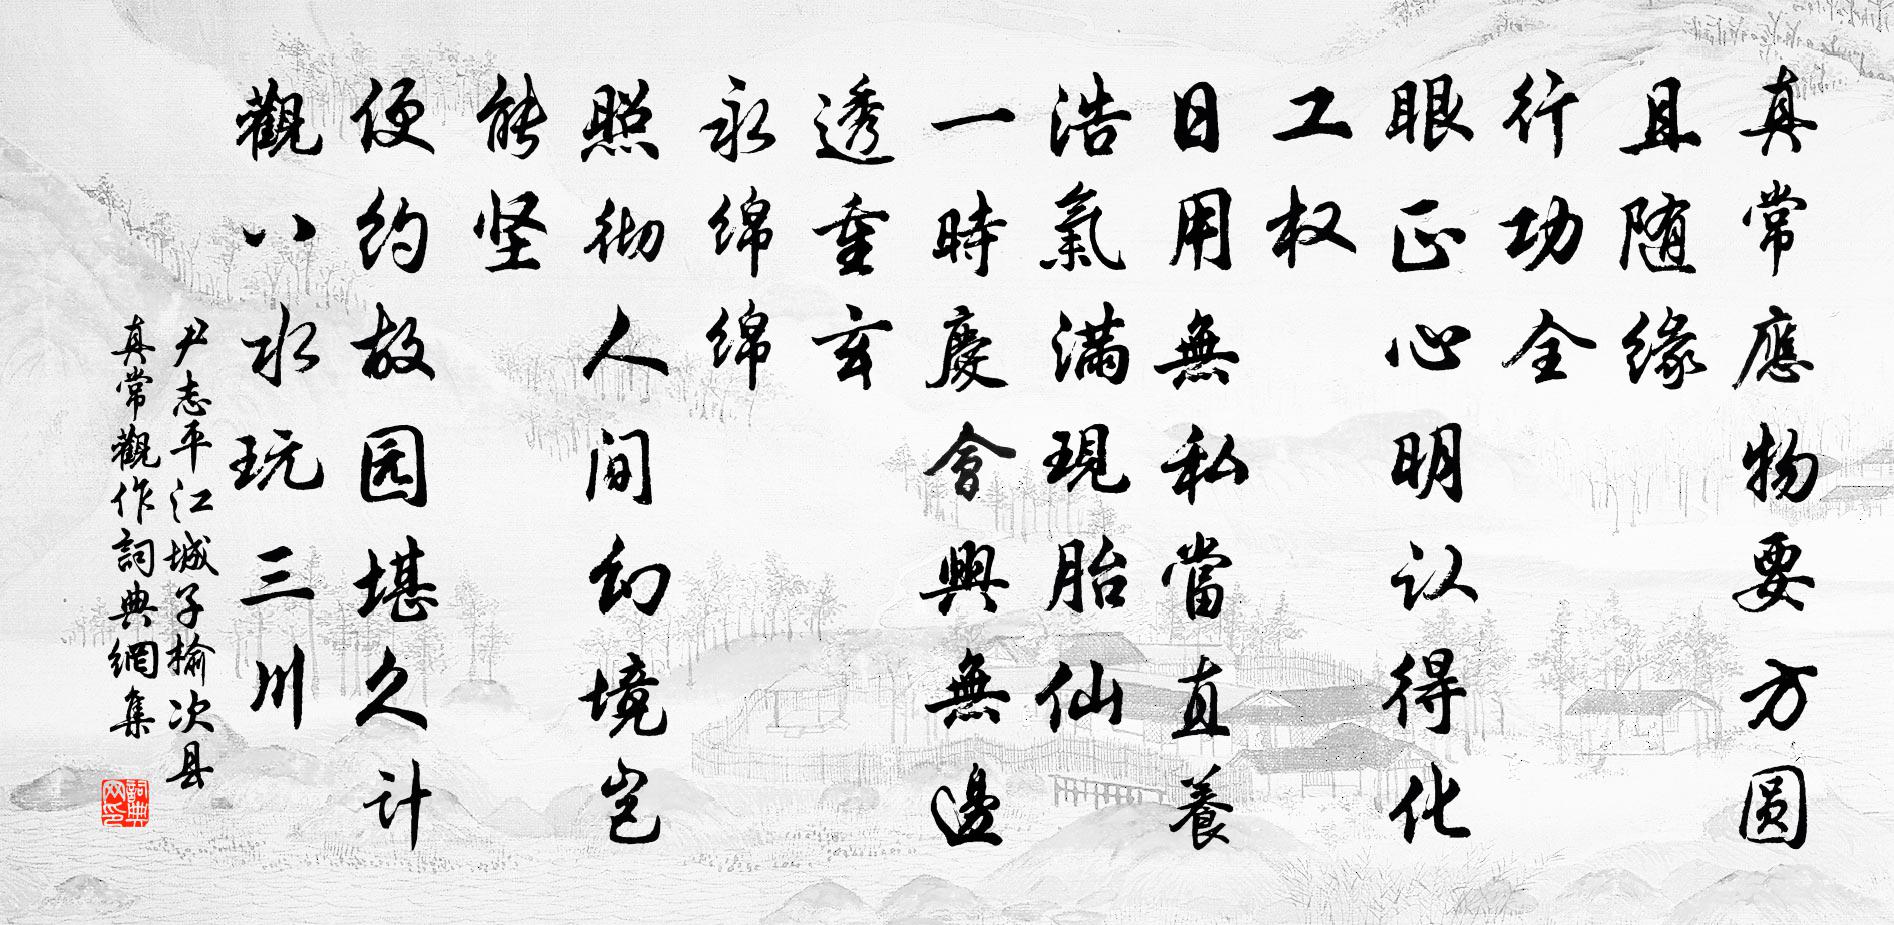 真常應物要方圆
且随缘
行功全
眼正心明认得化
工权
日用無私當直養
浩氣滿現胎仙
一時慶會興無邊
透重玄
永绵绵
照彻人间幻境岂
能坚
便约故园堪久计
觀八水玩三川
尹志平江城子榆次县
真常觀作詞典網集
詞典網印